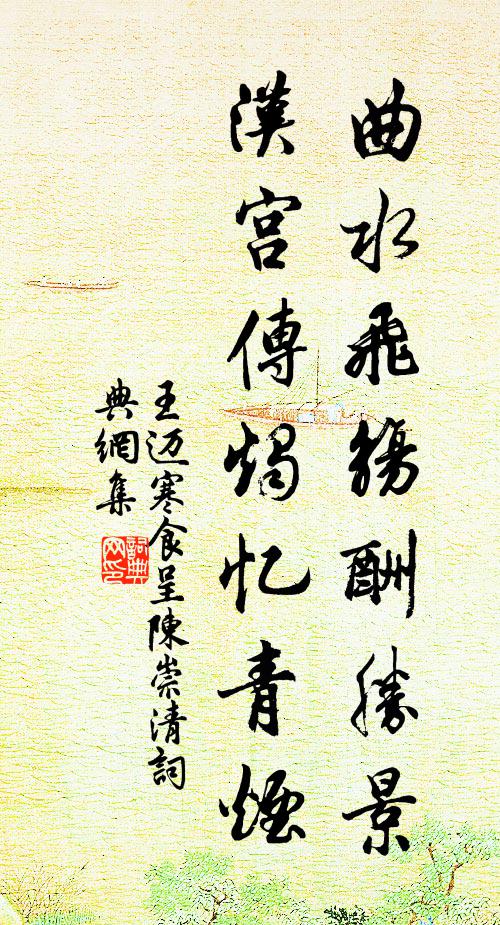 曲水飛觴酬勝景
漢宮傳燭忆青煙
王迈寒食呈陳崇清詞
典網集
詞典網印